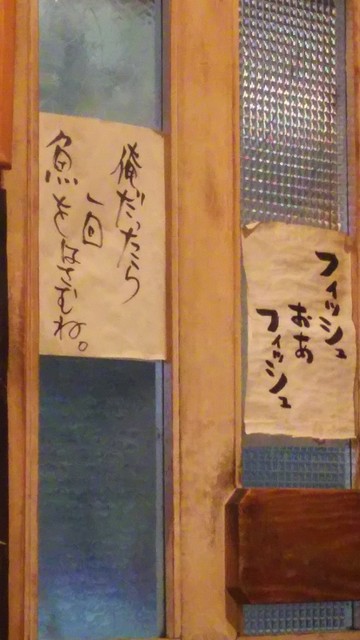 フィッシュ
おあ
フィッシュ
俺だったら
一回
魚をはさむね。